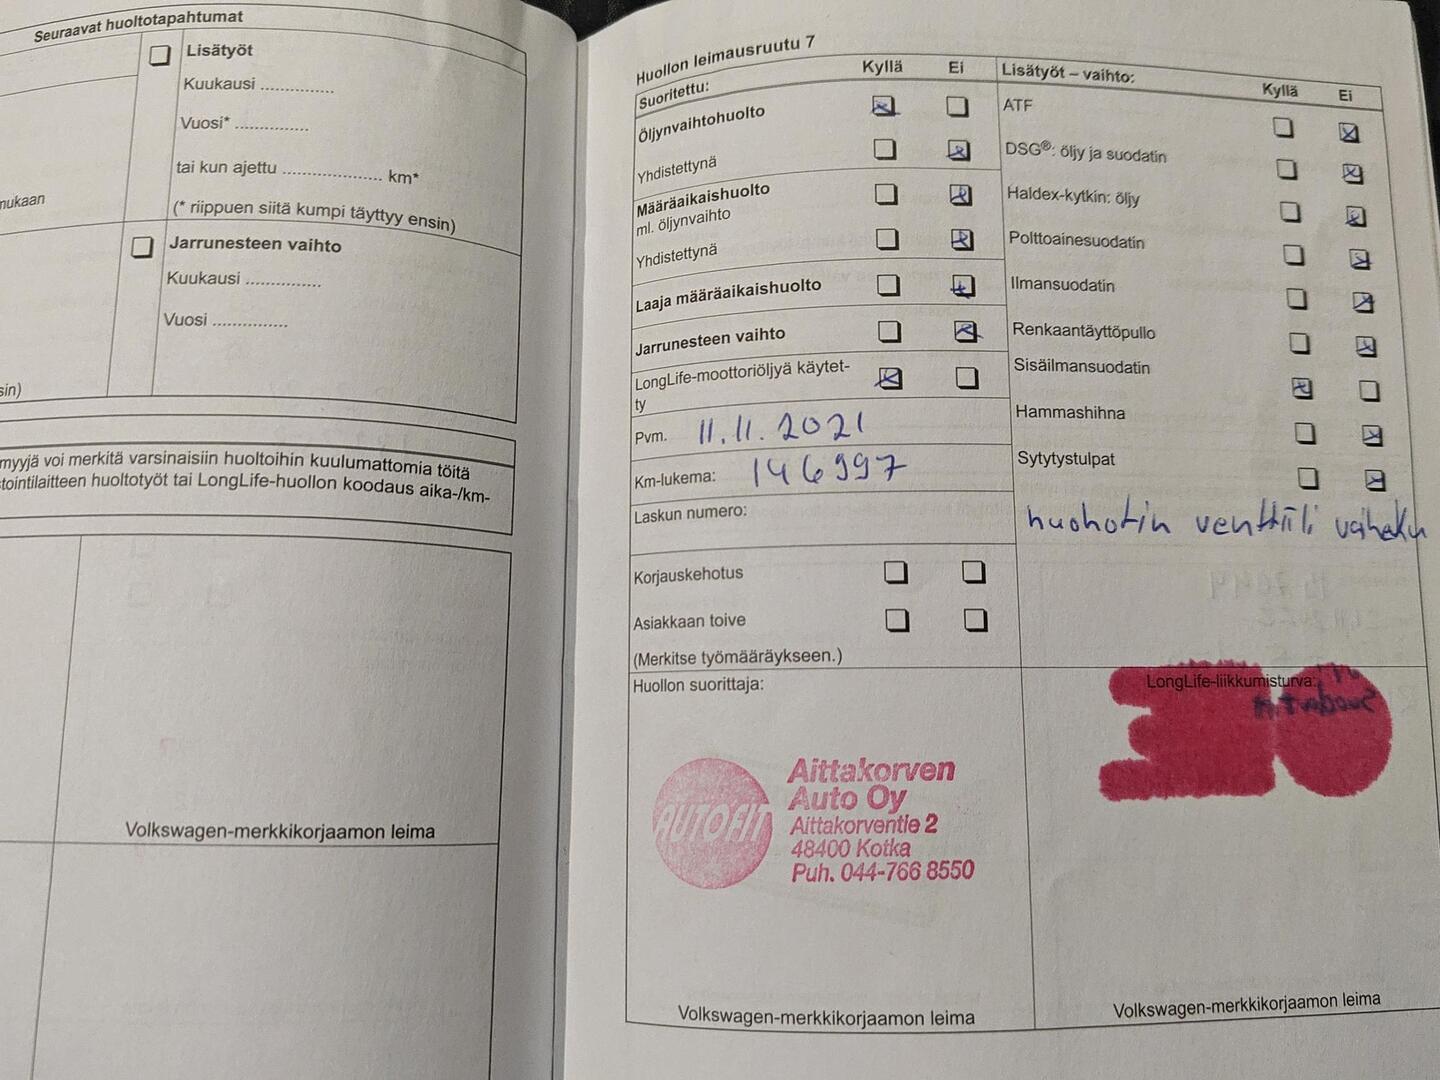 Seuraavat huoltotapahtumat
Lisätyöt
Kuukausi ...............
Vuosi* ...............
tai kun ajettu .................... km*
(* riippuen siitä kumpi täyttyy ensin)
mukaan
Jarrunesteen vaihto
Kuukausi ...............
Vuosi ...............
sin)
myyjä voi merkitä varsinaisiin huoltoihin kuulumattomia töitä
tointilaitteen huoltotyöt tai LongLife-huollon koodaus aika-/km-
Volkswagen-merkkikorjaamon leima
Huollon leimausruutu 7
Suoritettu: Kyllä Ei
Öljynvaihtohuolto
Yhdistettynä
Määräaikaishuolto
ml. öljynvaihto
Yhdistettynä
Laaja määräaikaishuolto
Jarrunesteen vaihto
LongLife-moottoriöljyä käytet-
ty
Pvm. 11.11.2021
Km-lukema: 146997
Laskun numero:
Korjauskehotus
Asiakkaan toive
(Merkitse työmääräykseen.)
Huollon suorittaja:
AUTOFIT
Aittakorven
Auto Oy
Aittakorventie 2
48400 Kotka
Puh. 044-766 8550
Volkswagen-merkkikorjaamon leima
Lisätyöt – vaihto: Kyllä Ei
ATF
DSG®: öljy ja suodatin
Haldex-kytkin: öljy
Polttoainesuodatin
Ilmansuodatin
Renkaantäyttöpullo
Sisäilmansuodatin
Hammashihna
Sytytystulpat
huohotin venttiili
LongLife-liikkumisturva:
Volkswagen-merkkikorjaamon leima